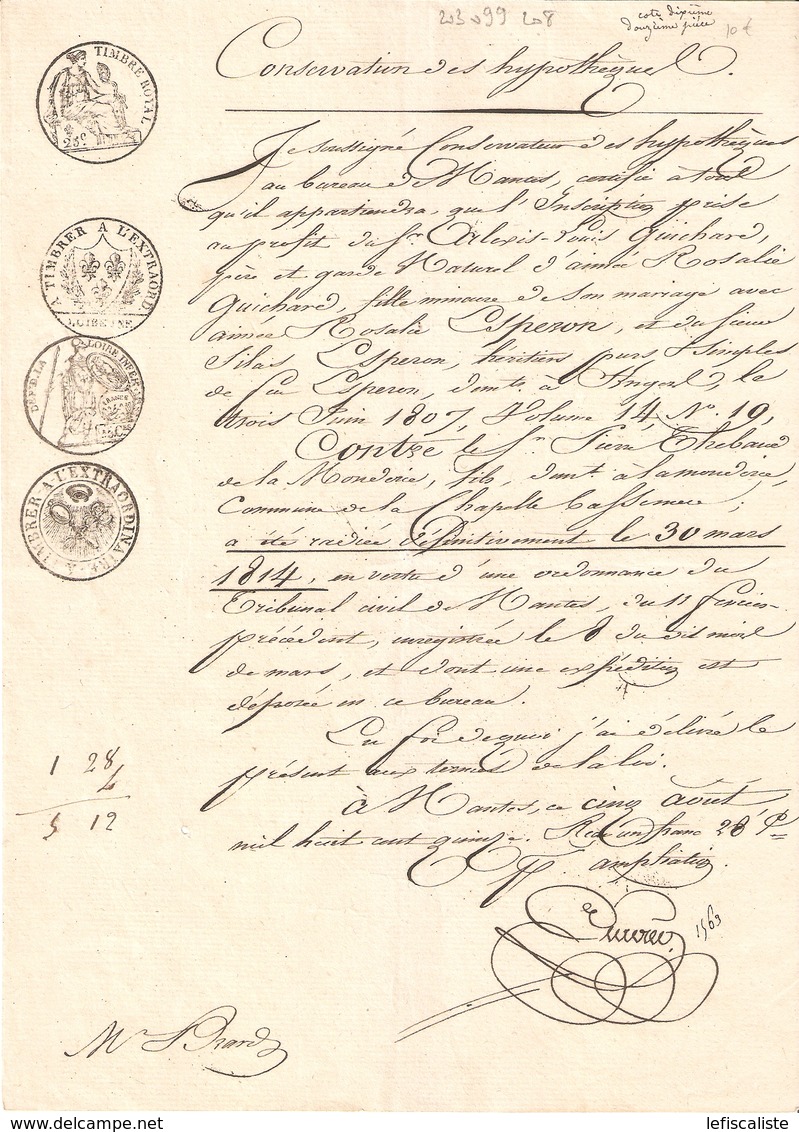 203099 208
cote dixième
douzième pièce
10 €
Conservation des hypothèques.
TIMBRE ROYAL
25c.
Je soussigné Conservateur des hypothèques
au bureau de Nantes, certifie à tous
qu'il appartiendra, que l'Inscription prise
au profit du Sr. Alexis-Louis Guichard,
A TIMBRER A L'EXTRAORD
père et garde Naturel d'aimée Rosalie
Guichard, fille mineure de son mariage avec
aimée Rosalie Esperon, et du sieur
Silas Esperon, héritiers purs & simples
DEPT. DE LA LOIRE INFER
de feu Esperon, demt. à Angers, le
trois Juin 1807, Volume 14, No. 19,
Contre le Sr. Pierre Thebaud
de la Monderie, fils, demt. à la monderie,
A TIMBRER A L'EXTRAORDINAIRE
Commune de la Chapelle bassemere;
a été radiée définitivement le 30 mars
1814, en vertu d'une ordonnance du
Tribunal civil de Nantes, du 11 fevrier
précédent, enregistrée le 8 du dit mois
de mars, et dont une expédition est
déposée en ce bureau.
En foi de quoi j'ai délivré le
présent aux termes de la loi.
1 28
4
5 12
à Nantes, ce cinq août
mil huit cent quinze. Reçu un franc 28 Cs
Pr ampliation
1563
Mr Brard
lefiscaliste